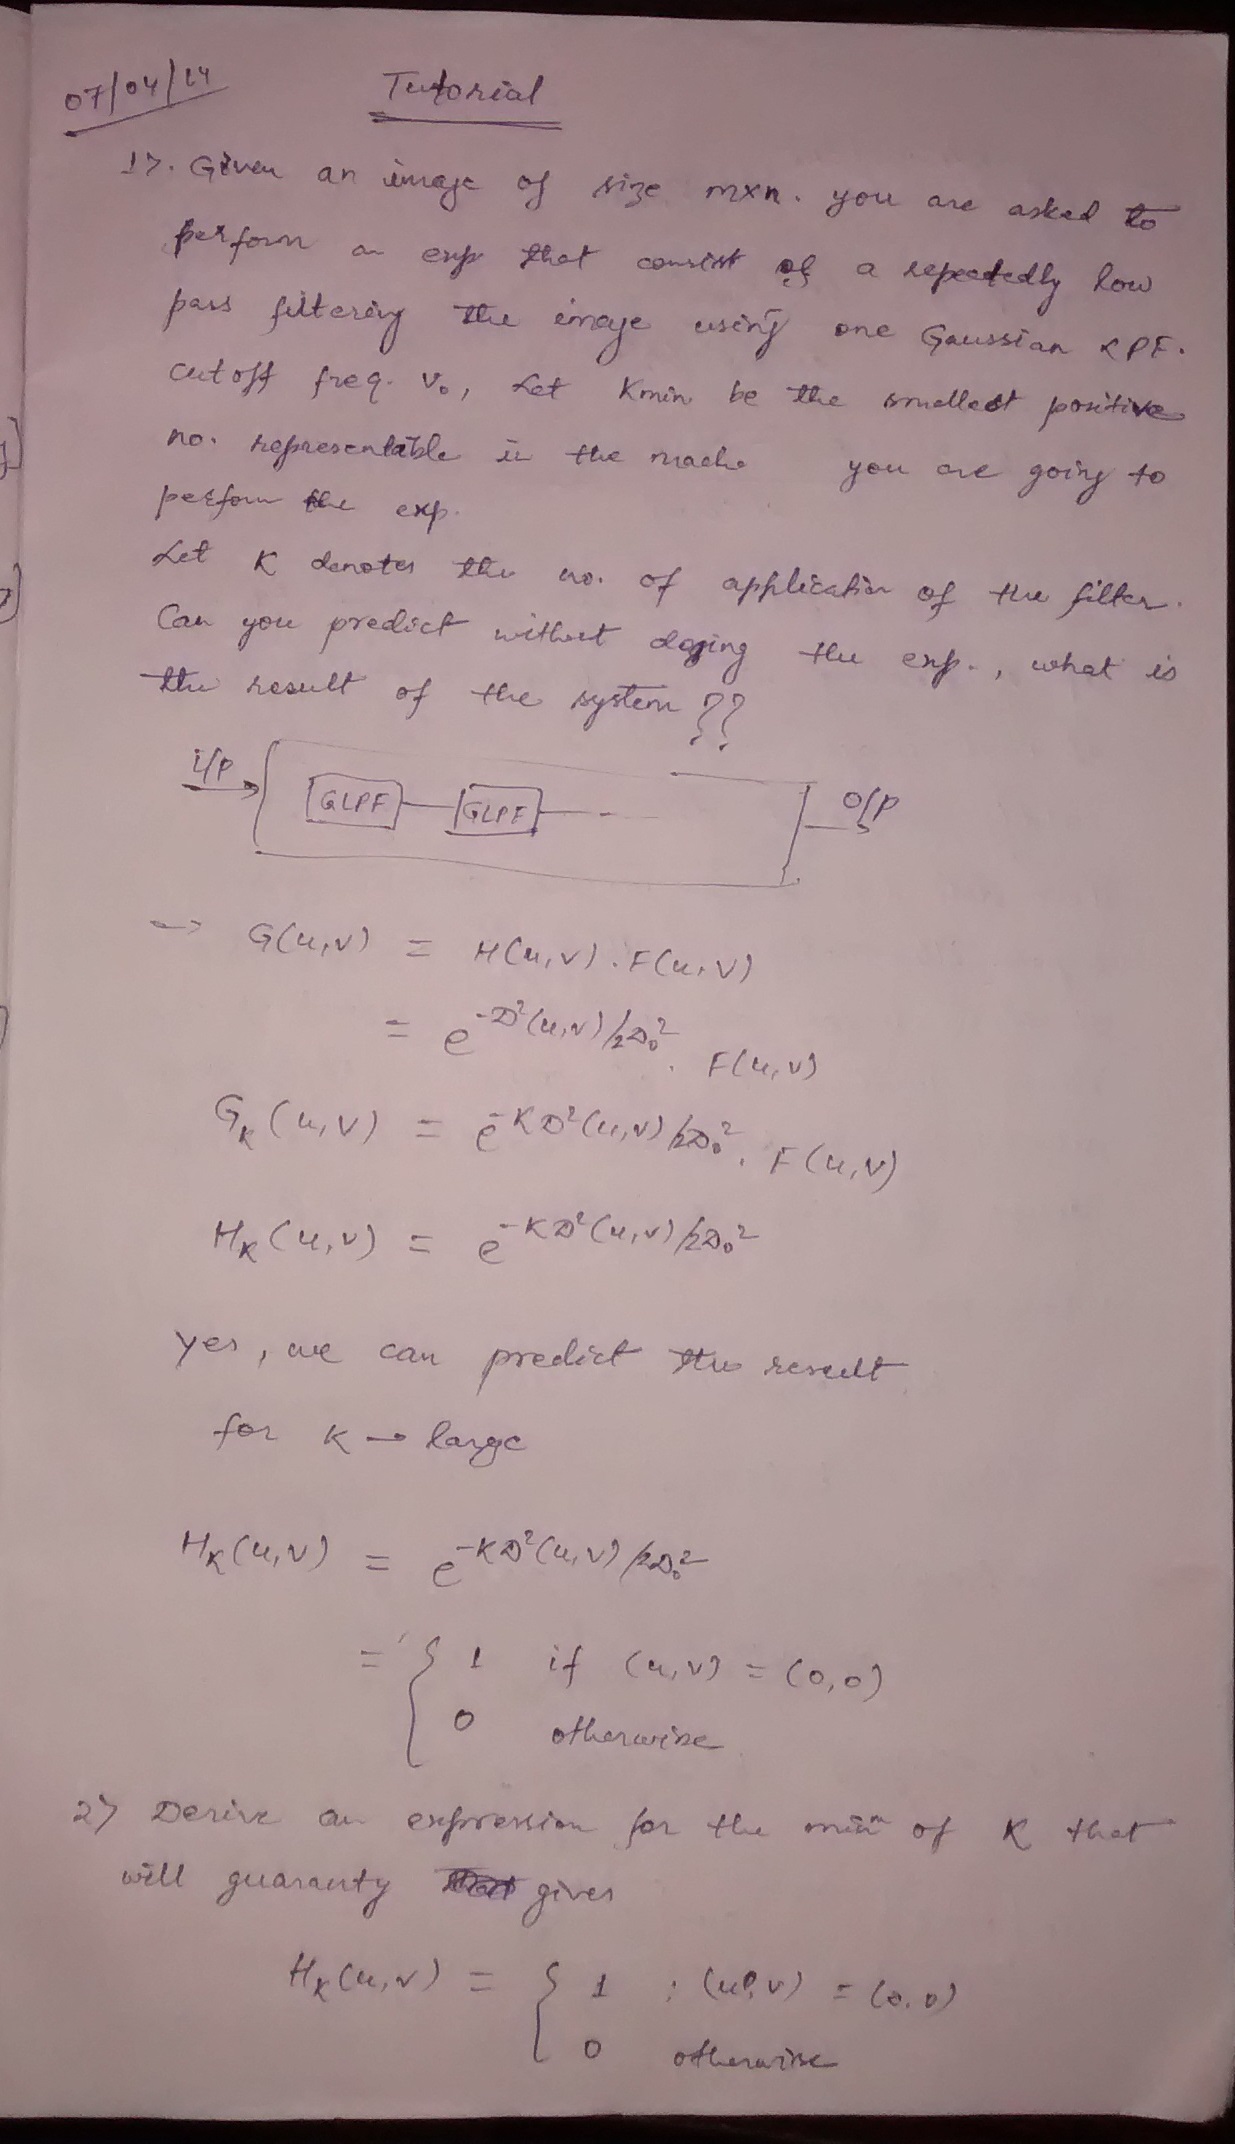 07/04/14
Tutorial
1>. Given an image of size mxn. you are asked to
perform a exp that consist of a repetedly low
pass filtering the image using one Gaussian LPF.
cutoff freq. v₀, Let Kmin be the smallest positive
no. representable in the machn you are going to
perform the exp.
Let K denotes the no. of application of the filter.
Can you predict without doing the exp., what is
the result of the system ??
i/p
GLPF
GLPF
o/p
→ G(u,v) = H(u,v).F(u,v)
= e^-D²(u,v)/2D₀² . F(u,v)
Gₖ(u,v) = e^-KD²(u,v)/2D₀² . F(u,v)
Hₖ(u,v) = e^-KD²(u,v)/2D₀²
Yes, we can predict the result
for K → large
Hₖ(u,v) = e^-KD²(u,v)/2D₀²
= { 1 if (u,v) = (0,0)
{ 0 otherwise
2> Derive an expression for the min^m of K that
will guaranty gives
Hₖ(u,v) = { 1 ; (u,v) = (0,0)
{ 0 otherwise